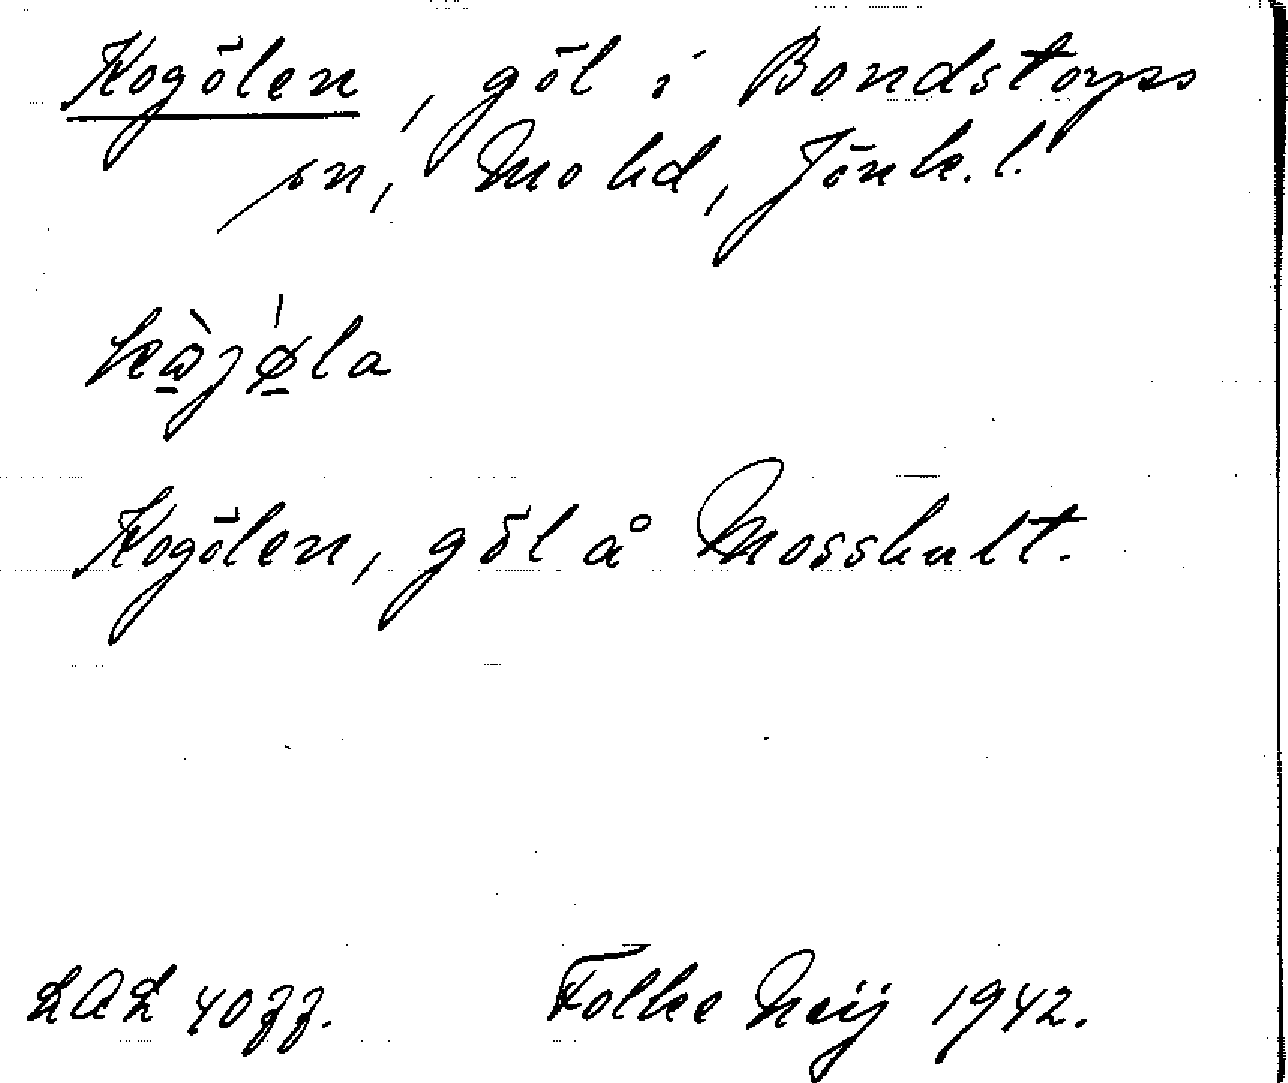 Kogölen, göl i Bondstorps
sn, Mo hd, Jönk. l.
Kogölen, göl å Mosshult.
LAL 4077. Folke Neij 1942.